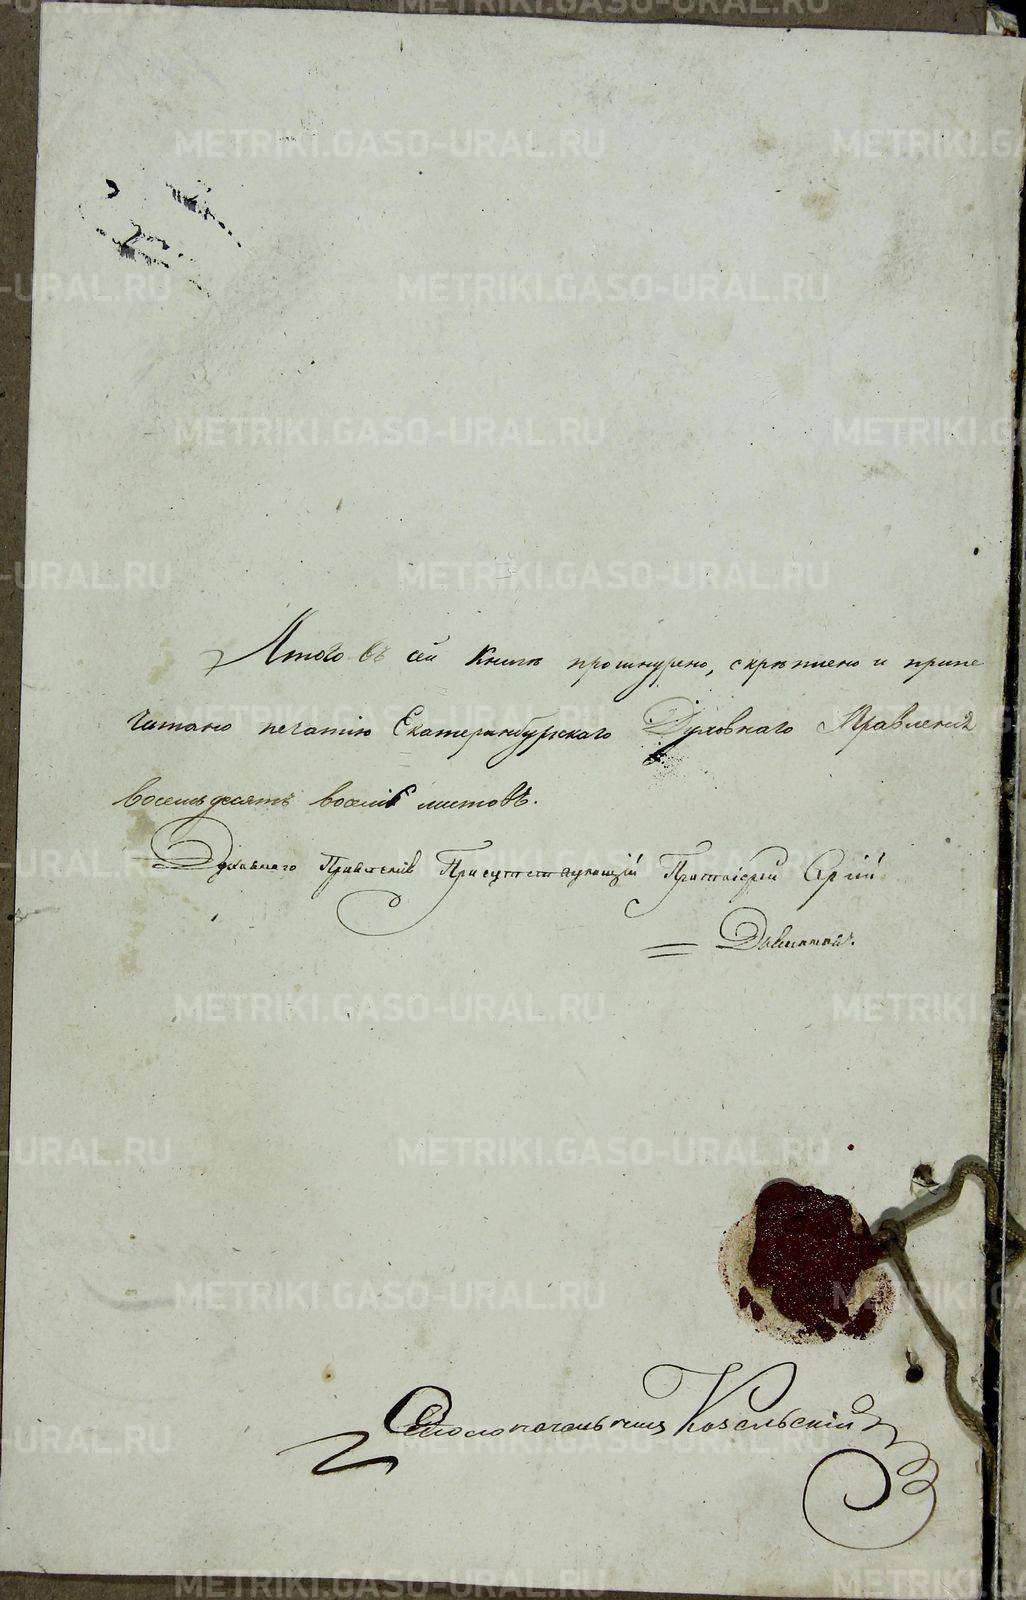 Итого въ сей книгѣ прошнурено, скрѣплено и припе
чатано печатію Екатеринбургскаго Духовнаго Правленія
восемьдесятъ восемь листовъ.
Духовнаго Правленія Присутствующій Протоіерей Сергій
Столоначальникъ Козельскій
METRIKI.GASO-URAL.RU